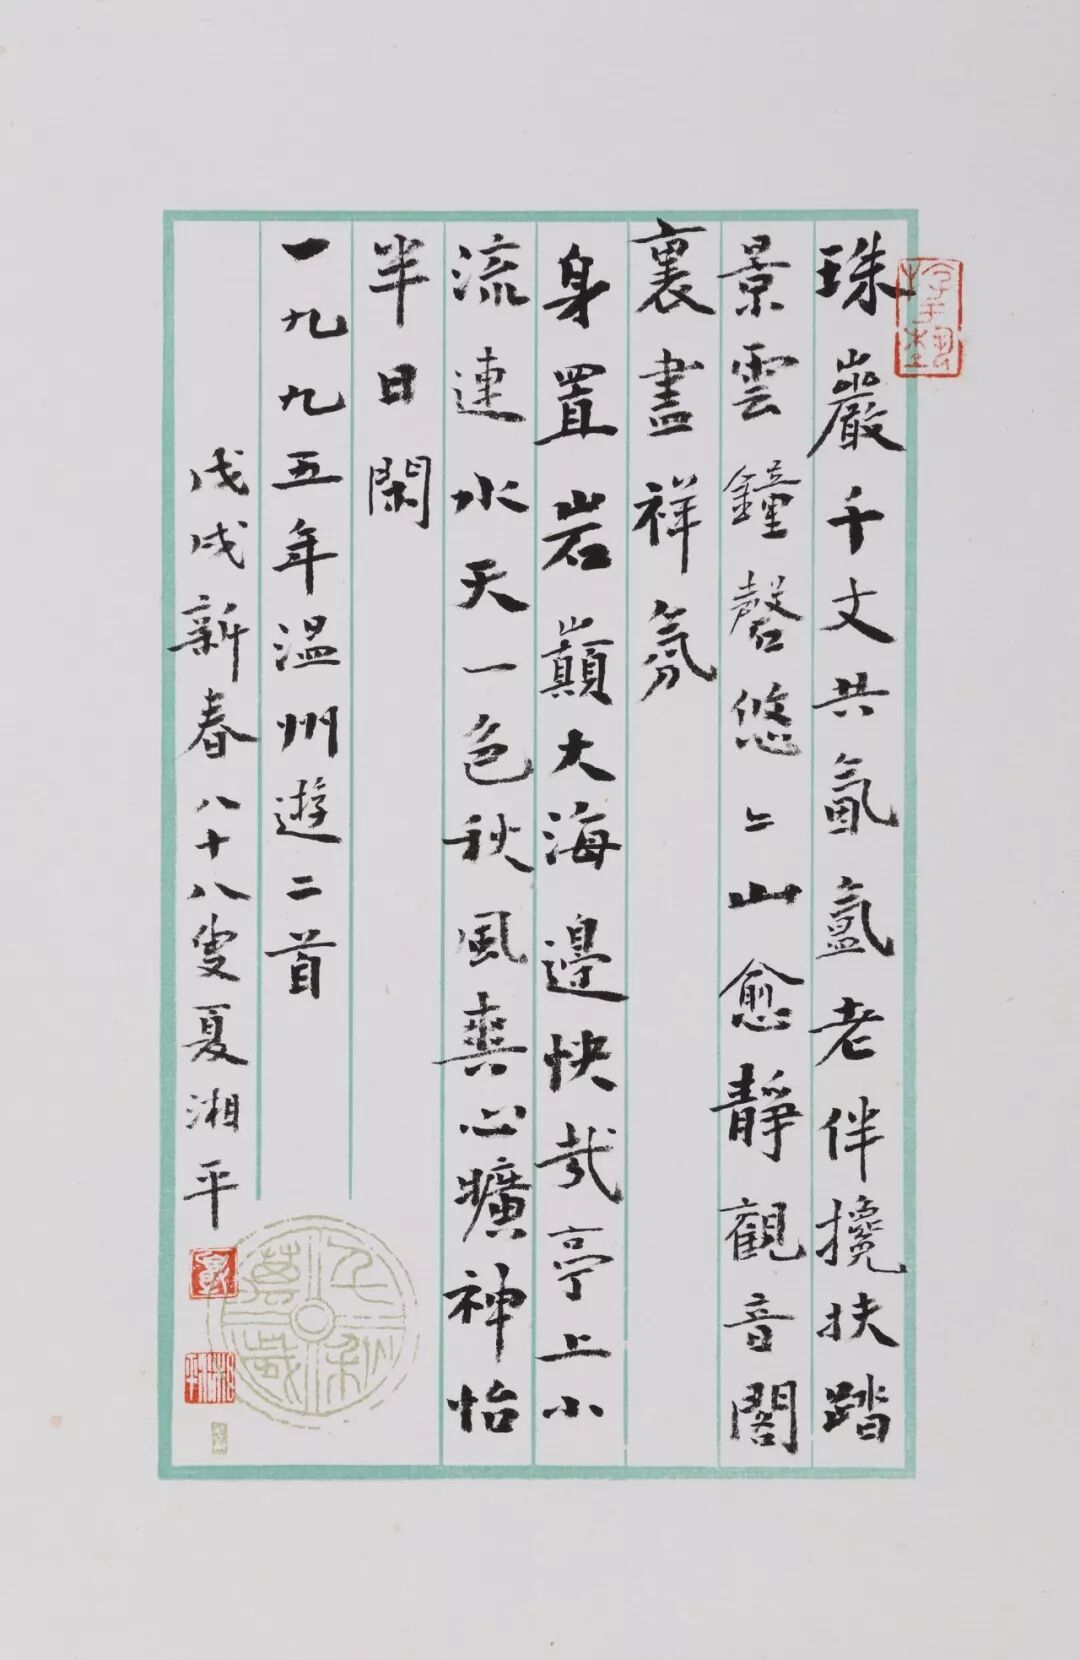 珠巖千丈共氤氳老伴攙扶踏
景雲鐘磬悠〻山愈靜觀音閣
裏盡祥氛
身置岩巔大海邊快哉亭上小
流連水天一色秋風爽心曠神怡
半日閑
一九九五年温州遊二首
戊戌新春八十八叟夏湘平